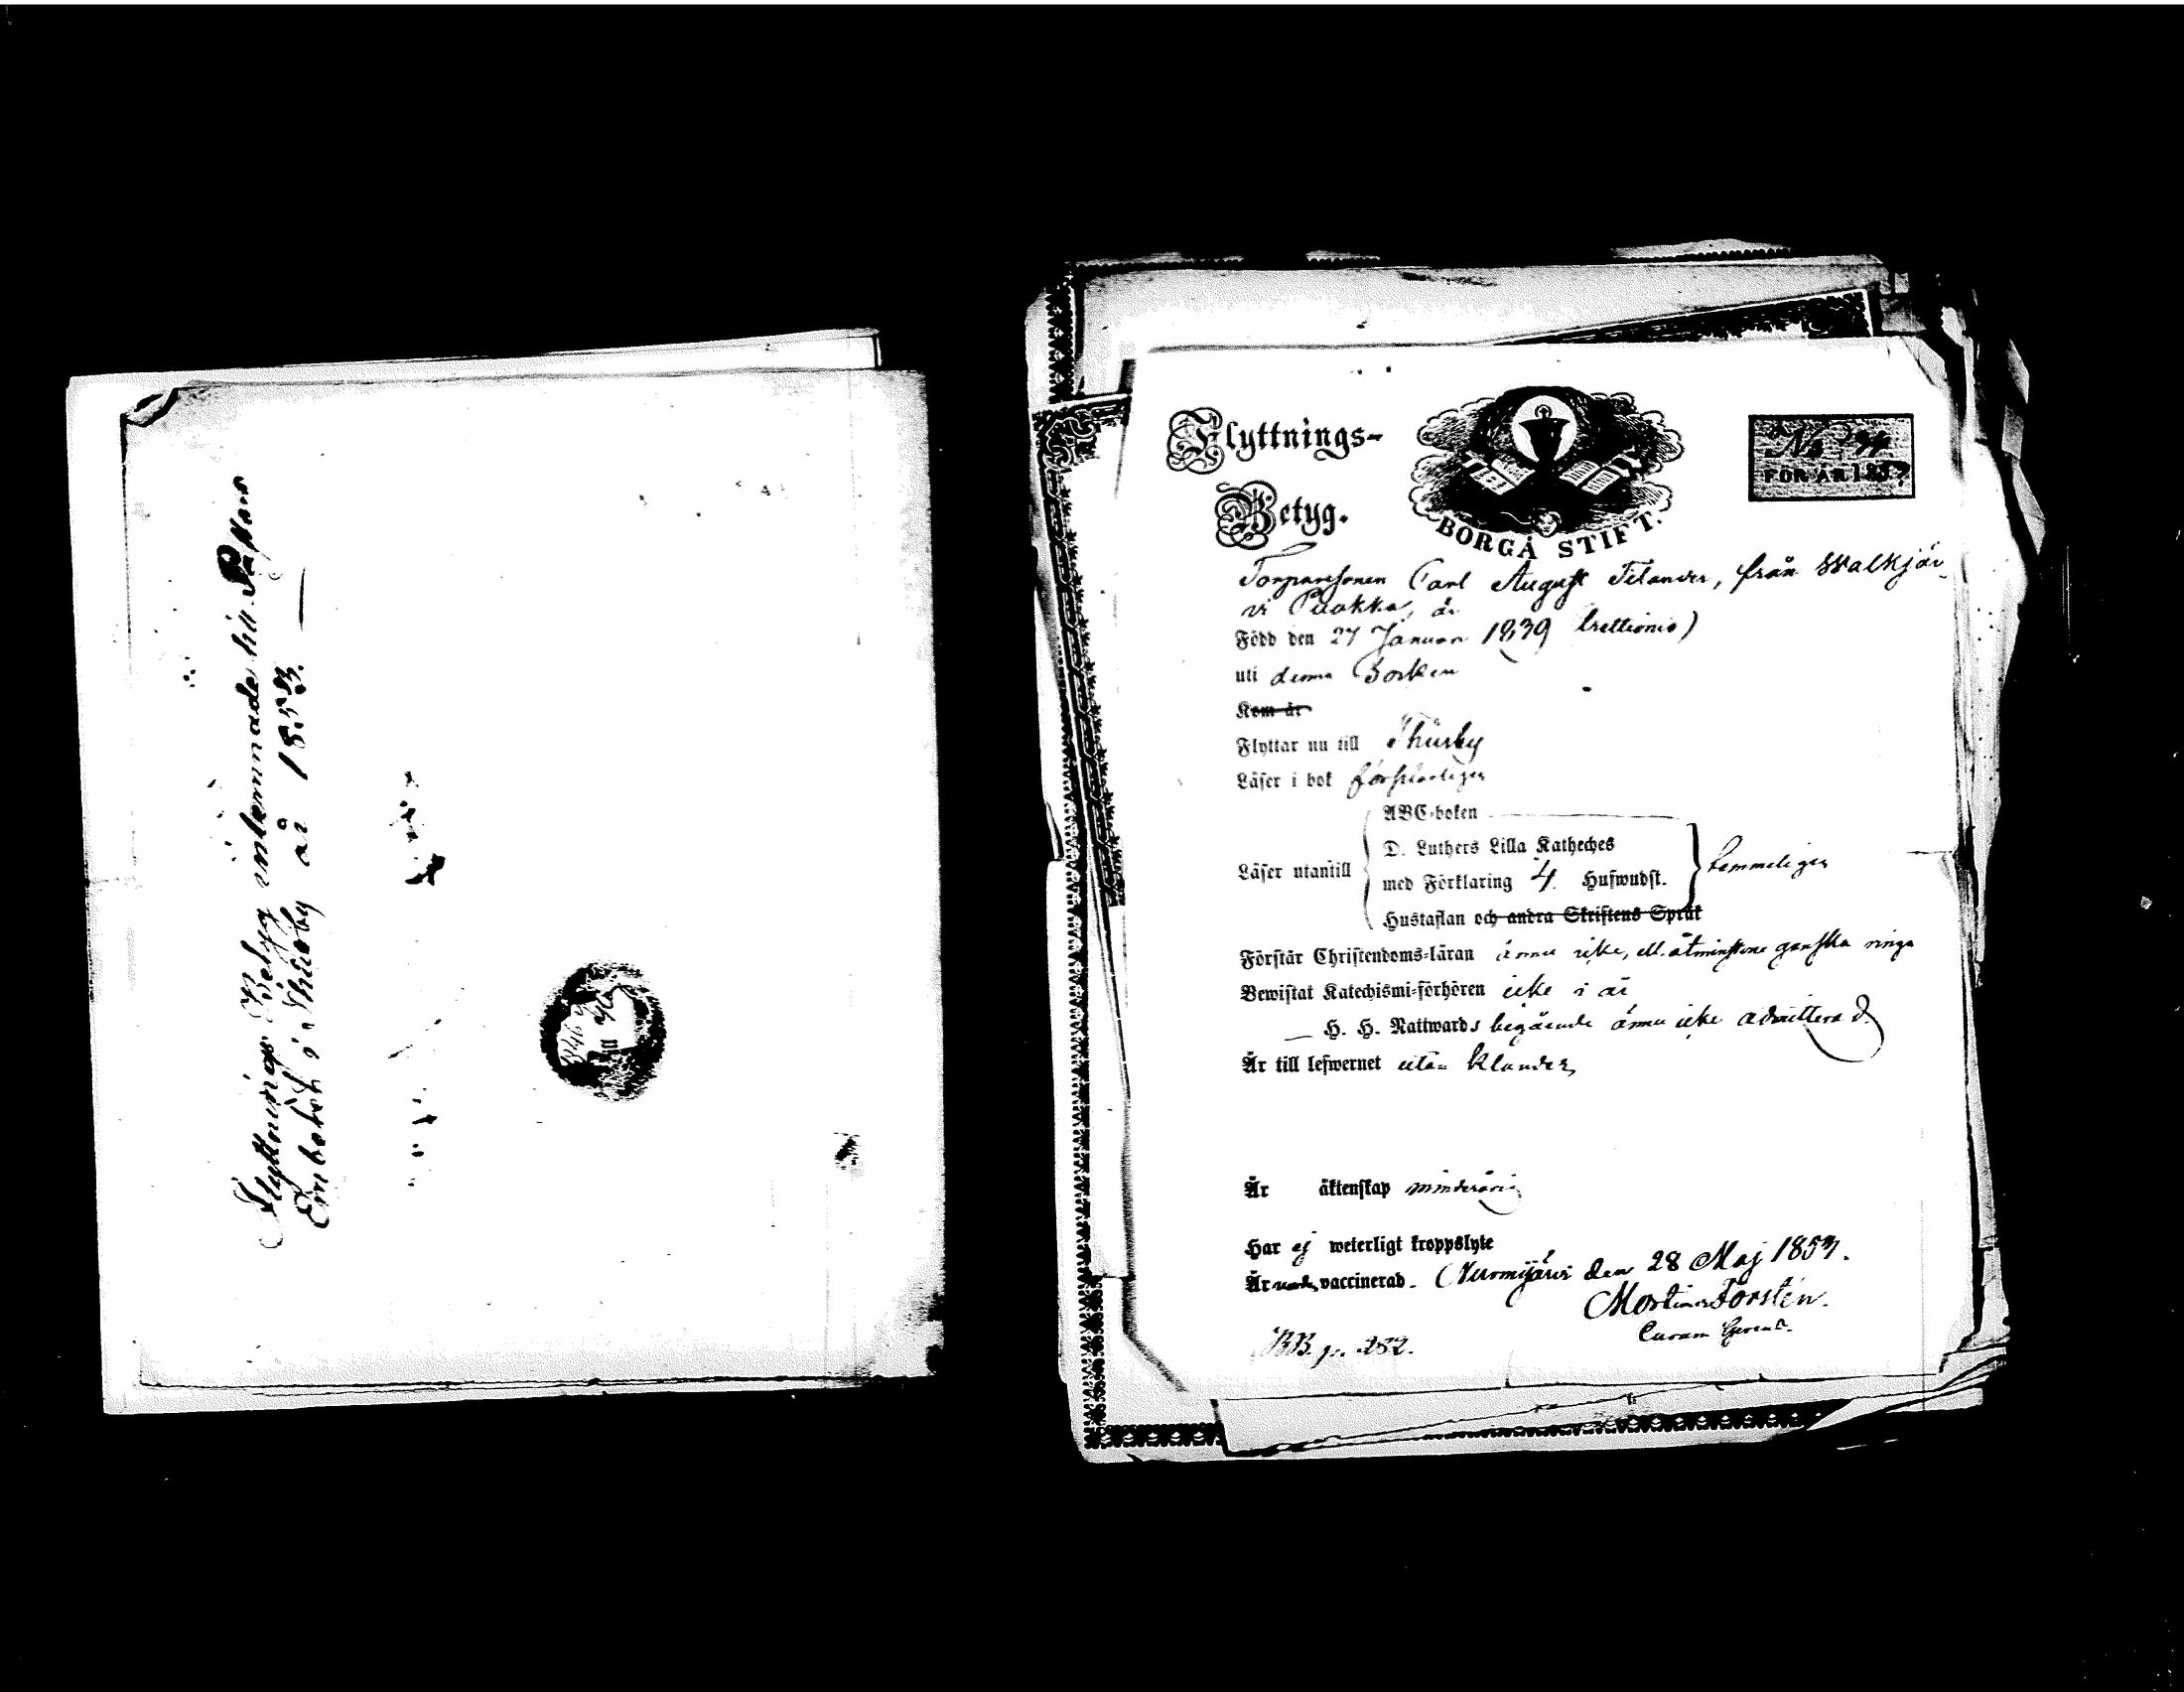 Flyttnings Betyg inkommade till Pastors
Embetet i Thusby år 1853.
Flyttnings-
Betyg.
BORGÅ STIFT.
No 94
FÖR ÅR 1853
Torparesonen Carl August Felander, från Walkjär-
vi Puakka, är
Född den 27 Januari 1839 trettionio)
uti denna Socken
Kom år
Flyttar nu till Thusby
Läser i bok försvarligen
ABC-boken
D. Luthers Lilla Katheches
Läser utantill med Förklaring 4. Hufwudst. temmeligen
Hustaflan och andra Skriftens Språk
Förstår Christendoms-läran ännu icke, ell. åtminstone ganska ringa
Bewistat Katechismi-förhören icke i år
H. H. Nattwards begående ännu icke admitterad.
Är till lefwernet utan klander,
Är äktenskap minderårig
Har ej weterligt kroppslyte
Är vaccinerad. Nurmijärvi den 28 Maj 1853.
Mortimer Forstén.
Curam Gerens.
BB. p. 252.